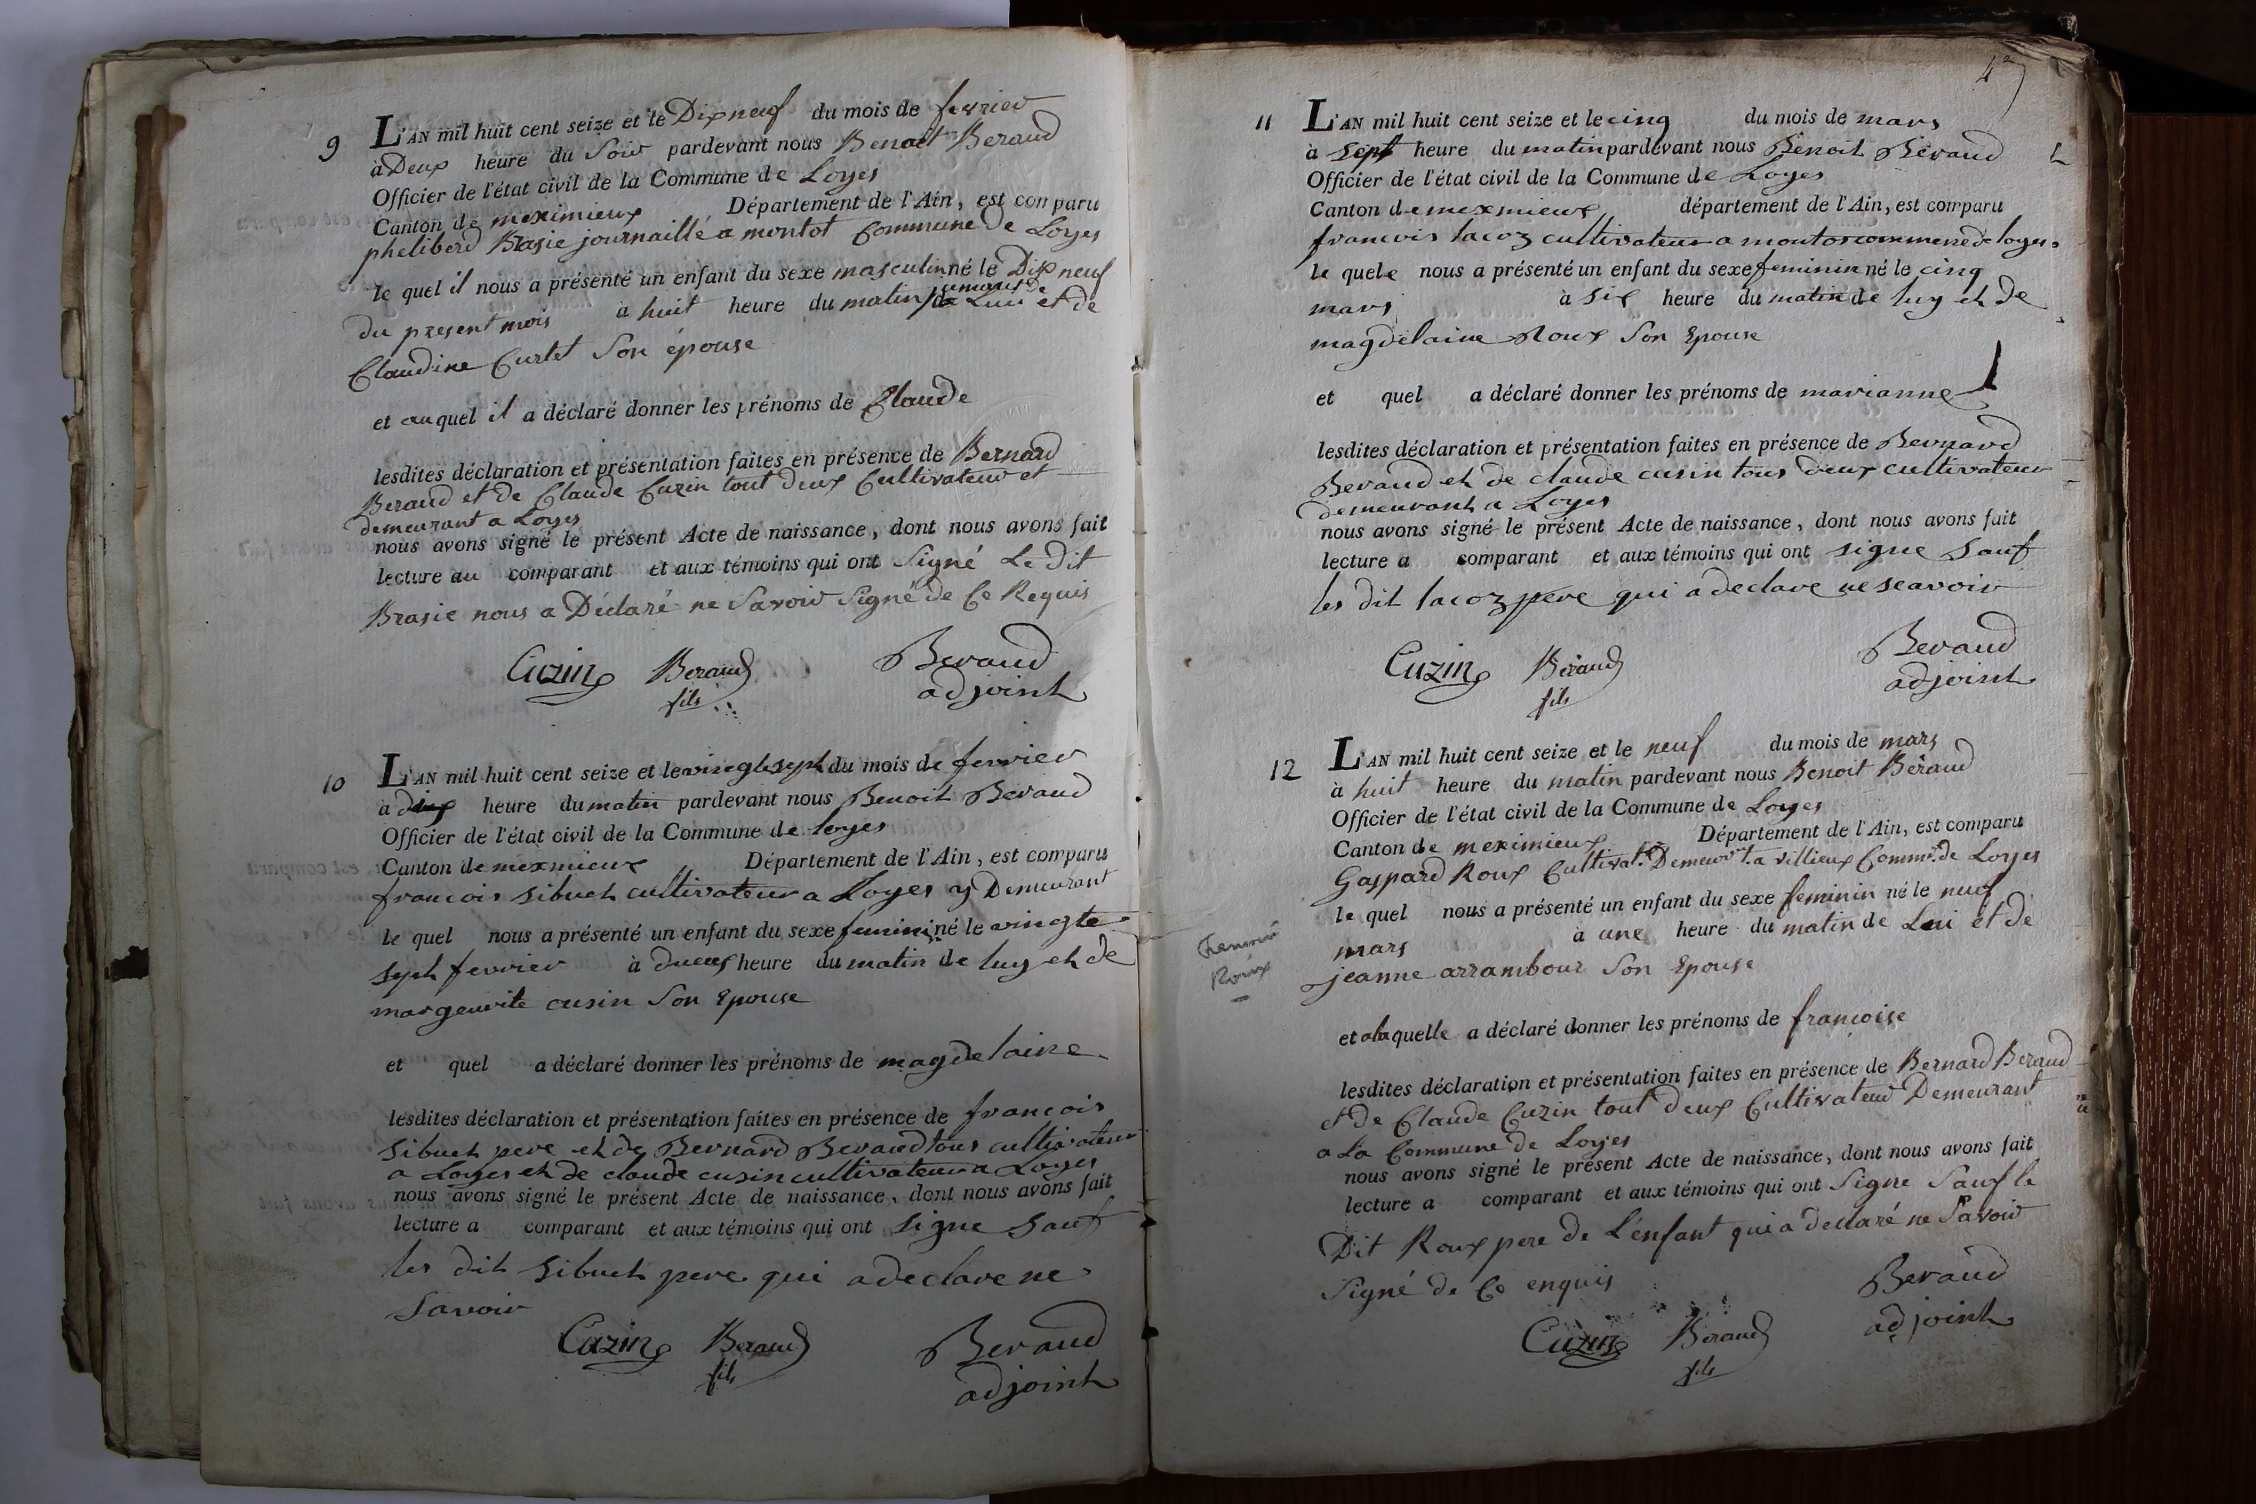 9
L'AN mil huit cent seize et le Dix neuf du mois de fevrier
à Deux heure du Soir pardevant nous Benoit Beraud
Officier de l'état civil de la Commune de Loyes
Canton de meximieux Département de l'Ain, est comparu
pheliberd Brasie journaillé a montot Commune de Loyes
le quel il nous a présenté un enfant du sexe masculin né le Dix neuf
du present mois à huit heure du matin de Lui et de
Claudine Curtet Son épouse
et auquel il a déclaré donner les prénoms de Claude
lesdites déclaration et présentation faites en présence de Bernard
Beraud et de Claude Cuzin tout deux Cultivateur et
demeurant a Loyes
nous avons signé le présent Acte de naissance, dont nous avons fait
lecture au comparant et aux témoins qui ont Signé Le dit
Brasie nous a Déclaré ne Savoir Signé de Ce Requis
Cuzin Beraud Beraud
fils adjoint
10
L'AN mil huit cent seize et le vingte sept du mois de fevrier
à dix heure du matin pardevant nous Benoit Beraud
Officier de l'état civil de la Commune de loyes
Canton de mexmieux Département de l'Ain, est comparu
francois sibuet cultivateur a Loyes y Demeurant
le quel nous a présenté un enfant du sexe feminin né le vingte
sept fevrier à heure du matin de luy et de
margeurite cusin Son Epouse
et quel a déclaré donner les prénoms de magdelaine
lesdites déclaration et présentation faites en présence de francois
sibuet pere et de Bernard Beraud tous cultivateur
a Loyes et de claude cusin cultivateur a Loyes
nous avons signé le présent Acte de naissance, dont nous avons fait
lecture a comparant et aux témoins qui ont signe Sauf
les dit sibuet pere qui a declare ne
savoir
Cuzin Beraud Beraud
fils adjoint
11
L'AN mil huit cent seize et le cinq du mois de mars
à sept heure du matin pardevant nous Benoit Beraud
Officier de l'état civil de la Commune de Loyes
Canton de mexmieux département de l'Ain, est comparu
francois lacoz cultivateur a montos commene de loyes
le quele nous a présenté un enfant du sexe feminin né le cinq
mars à six heure du matin de luy et de
magdelaine Roux Son Epouse
et quel a déclaré donner les prénoms de marianne
lesdites déclaration et présentation faites en présence de Bernard
Beraud et de claude cusin tous deux cultivateur
demeurant a Loyes
nous avons signé le présent Acte de naissance, dont nous avons fait
lecture a comparant et aux témoins qui ont signe Sauf
les dit lacoz pere qui a declare ne seavoir
Cuzin Beraud Beraud
fils adjoint
12
L'AN mil huit cent seize et le neuf du mois de mars
à huit heure du matin pardevant nous Benoit Beraud
Officier de l'état civil de la Commune de Loyes
Canton de meximieux Département de l'Ain, est comparu
Gaspard Roux Cultivat.r Demeurt. a villieux Comme. de Loyes
le quel nous a présenté un enfant du sexe feminin né le neuf
mars à une heure du matin de Lui et de
jeanne arrambour Son Epouse
et a laquelle a déclaré donner les prénoms de francoise
lesdites déclaration et présentation faites en présence de Bernard Beraud
et de Claude Cuzin tout deux Cultivateur Demeurant
a La Commune de Loyes
nous avons signé le présent Acte de naissance, dont nous avons fait
lecture a comparant et aux témoins qui ont Signe Sauf le
Dit Roux pere de L'enfant qui a declaré ne Savoir
Signé de Ce enquis
Cuzin Beraud Beraud
fils adjoint
Roux